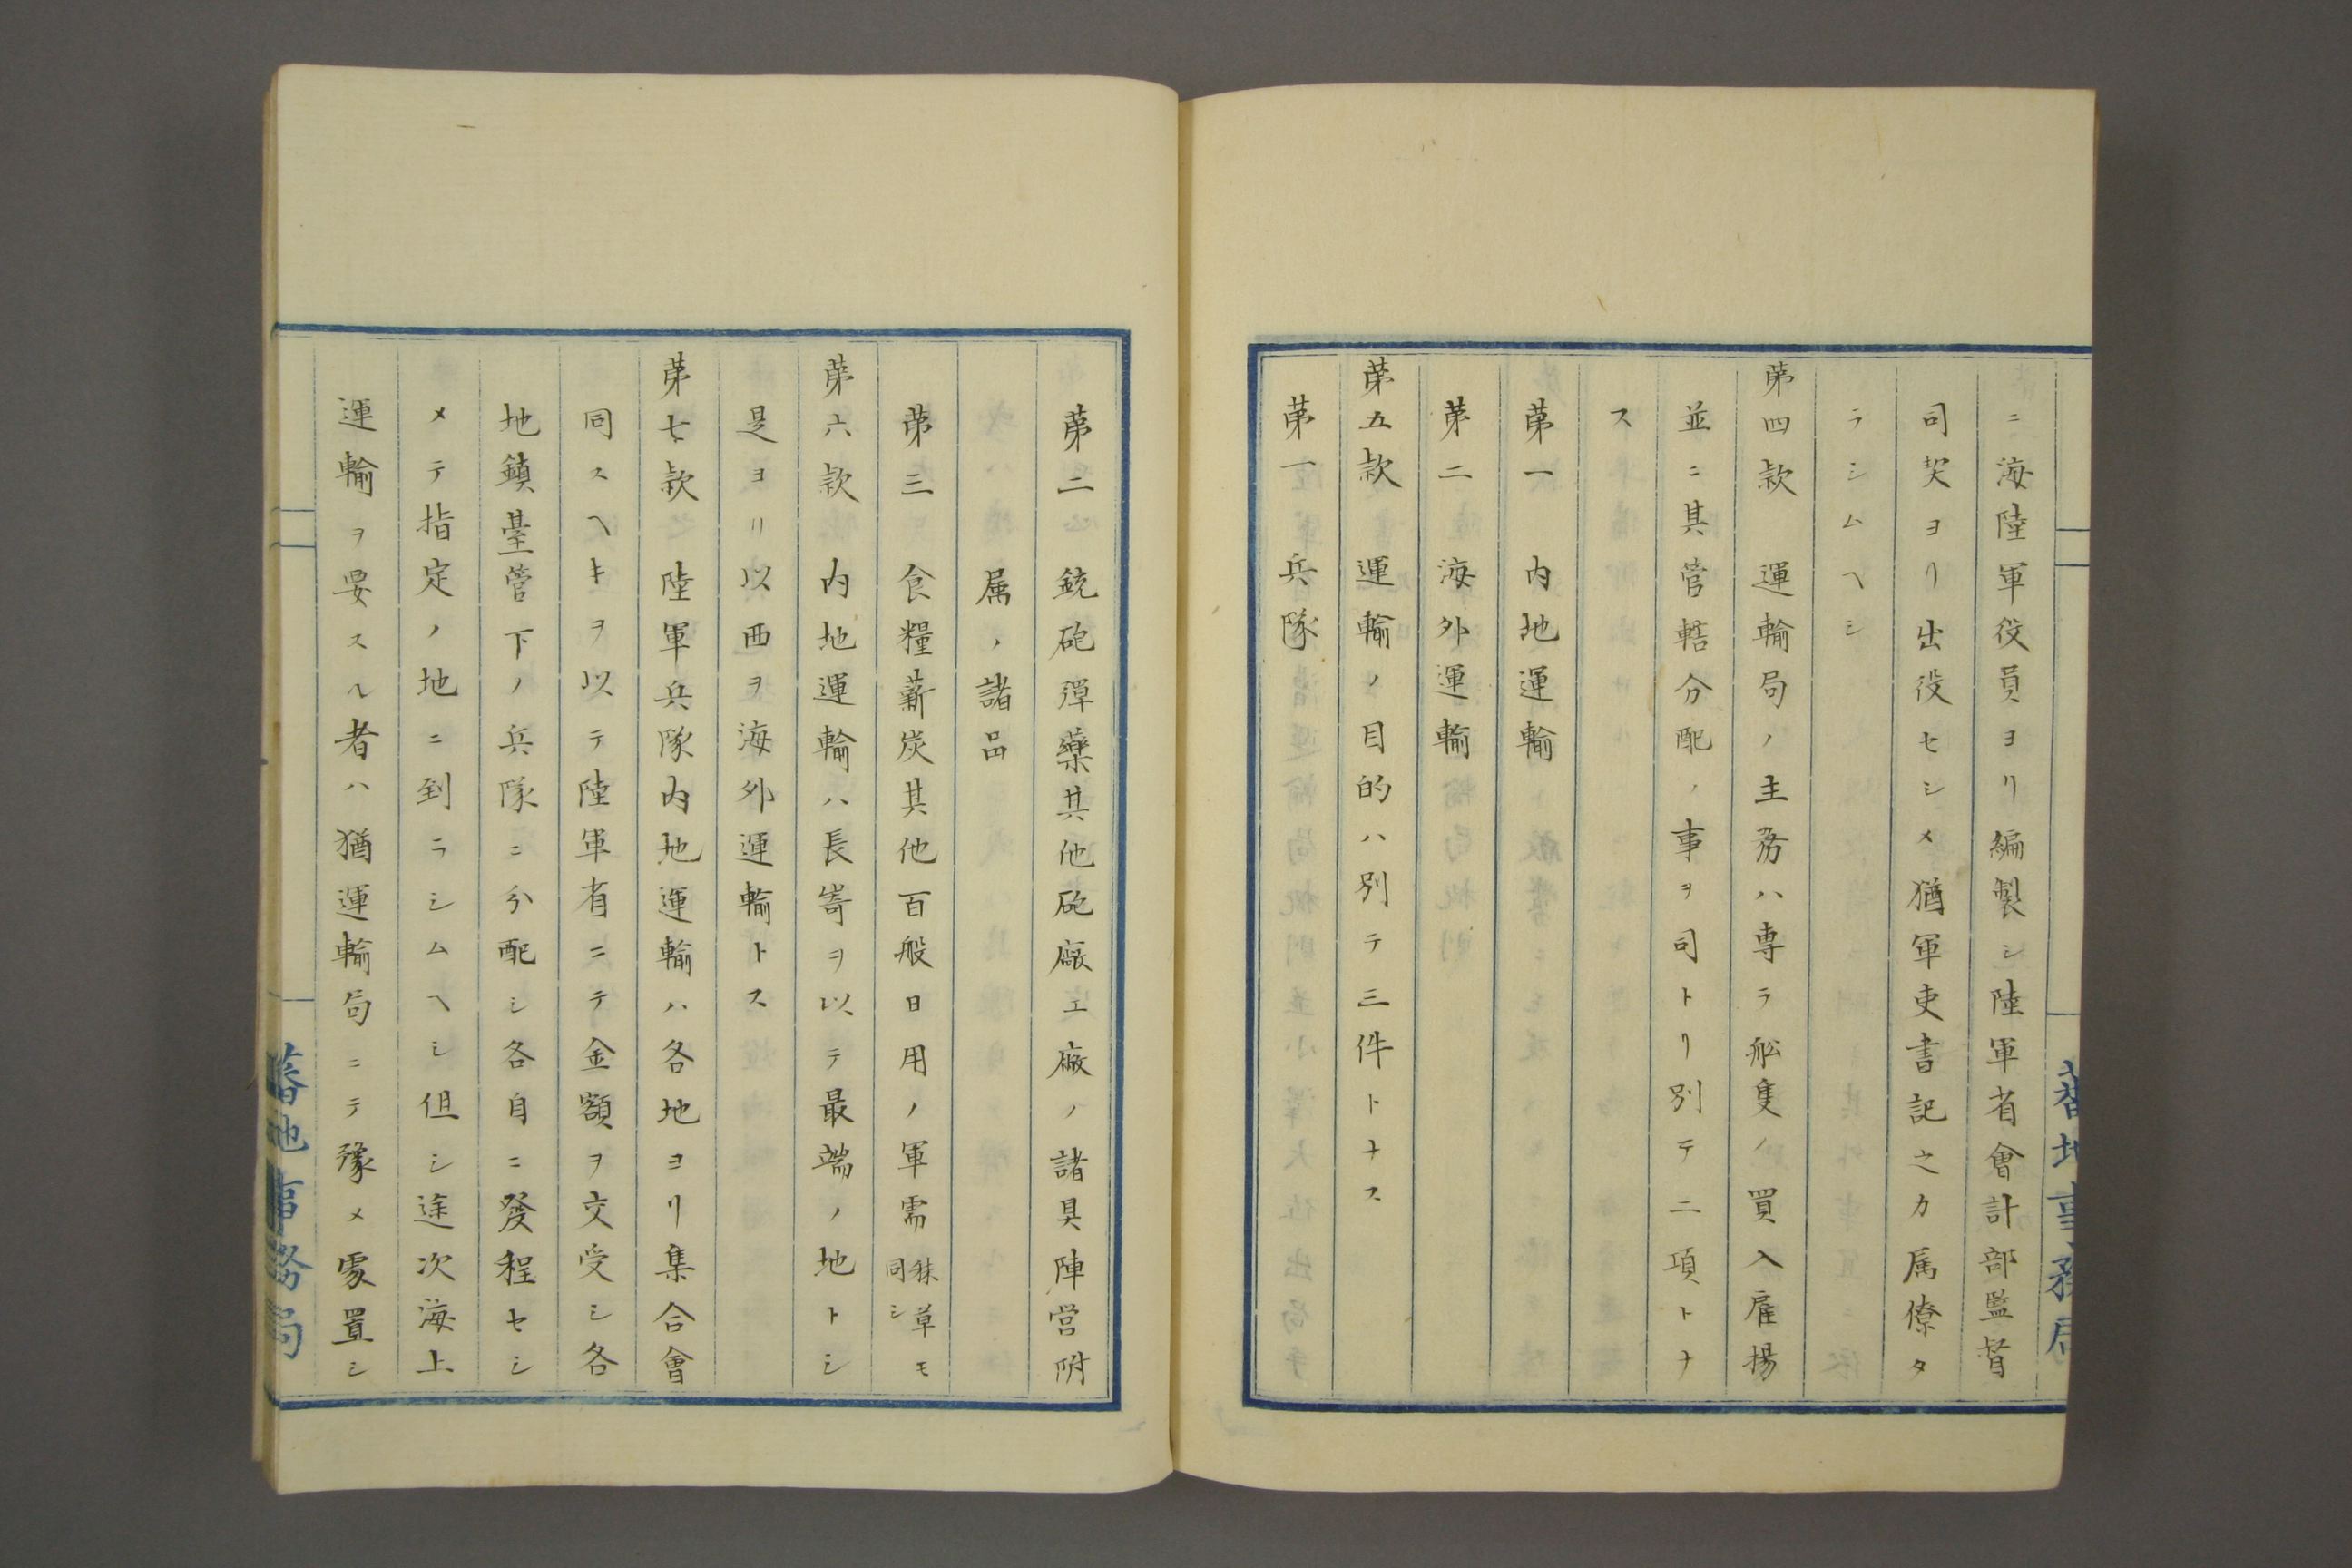 蕃地事務局
ニ海陸軍役員ヨリ編製シ陸軍省會計部監督
司契ヨリ出役セシメ猶軍吏書記之カ属僚タ
ラシムヘシ
第四款　運輸局ノ主務ハ専ラ舩隻ノ買入雇揚
並ニ其管轄分配ノ事ヲ司トリ別テ二項トナ
ス
第一　内地運輸
第二　海外運輸
第五款　運輸ノ目的ハ別テ三件トナス
第一　兵隊
第二　銃砲彈藥其他砲廠工廠ノ諸具陣営附
属ノ諸品
第三　食糧薪炭其他百般日用ノ軍需秣草モ同シ
第六款　内地運輸ハ長崎ヲ以テ最端ノ地トシ
是ヨリ以西ヲ海外運輸トス
第七款　陸軍兵隊内地運輸ハ各地ヨリ集合會
同スヘキヲ以テ陸軍省ニテ金額ヲ交受シ各
地鎮臺管下ノ兵隊ニ分配シ各自ニ發程セシ
メテ指定ノ地ニ到ラシムヘシ但シ途次海上
運輸ヲ要スル者ハ猶運輸局ニテ豫メ處置シ
蕃地事務局